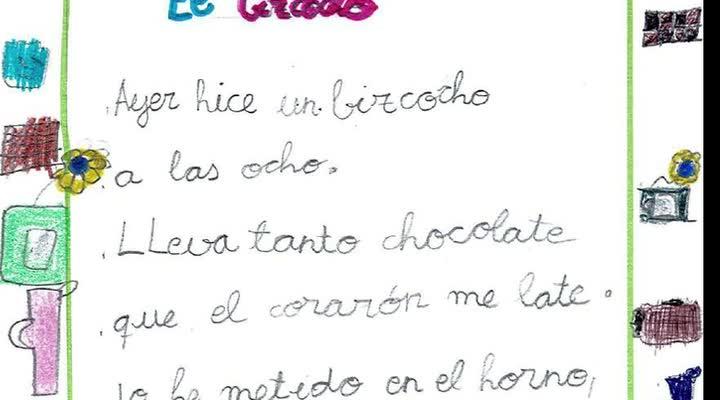 El
Ayer hice un bizcocho
a las ocho.
LLeva tanto chocolate
que el corazón me late.
lo he metido en el horno,